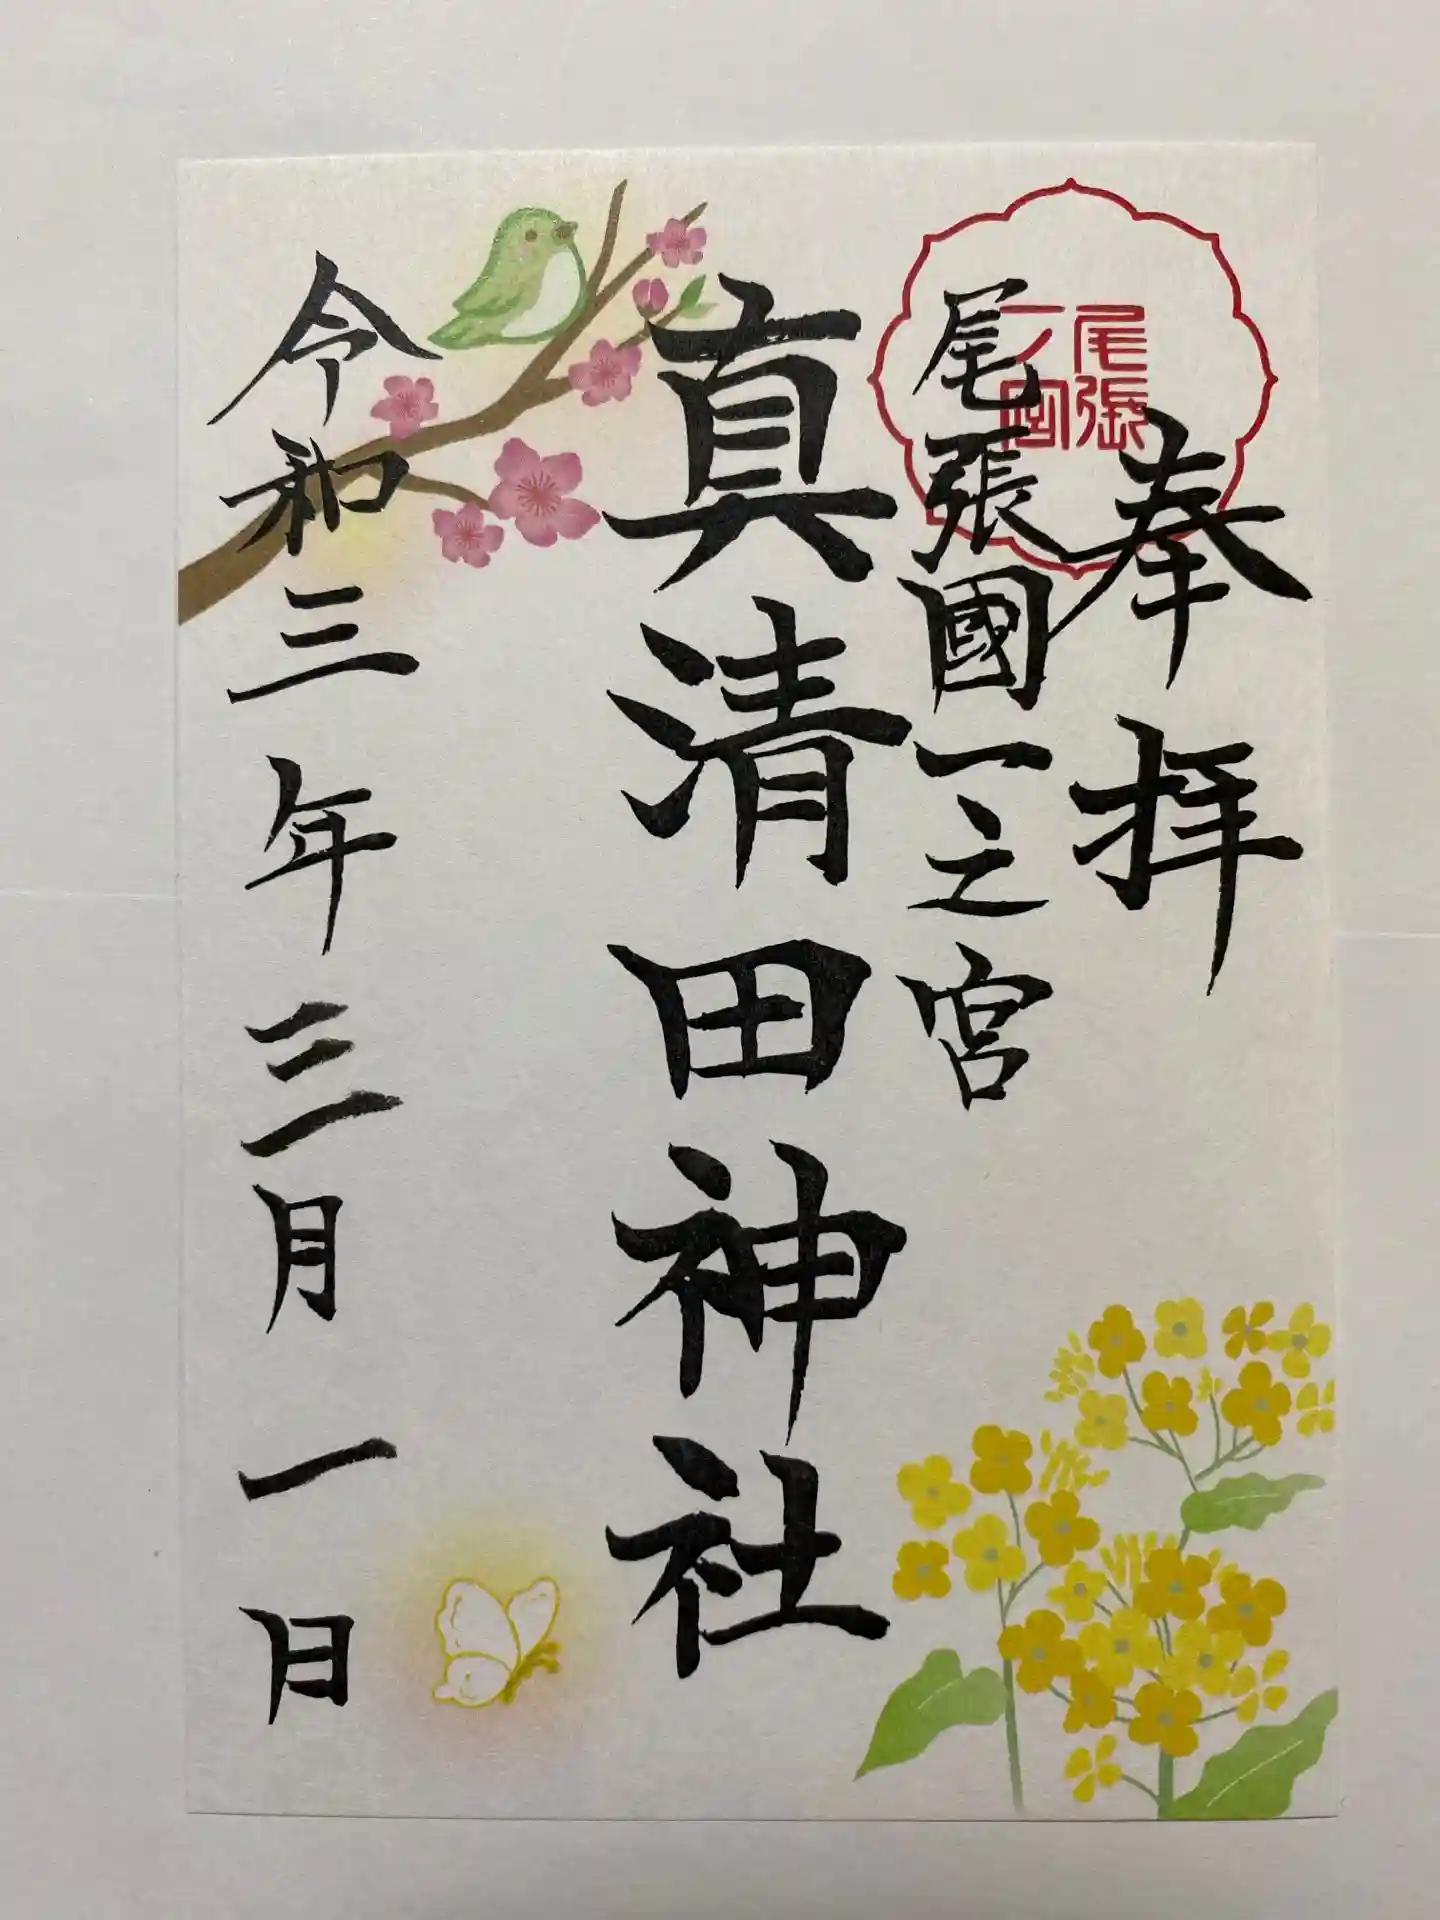 奉拝
尾張
一ノ宮
尾張國一之宮
真清田神社
令和三年三月一日